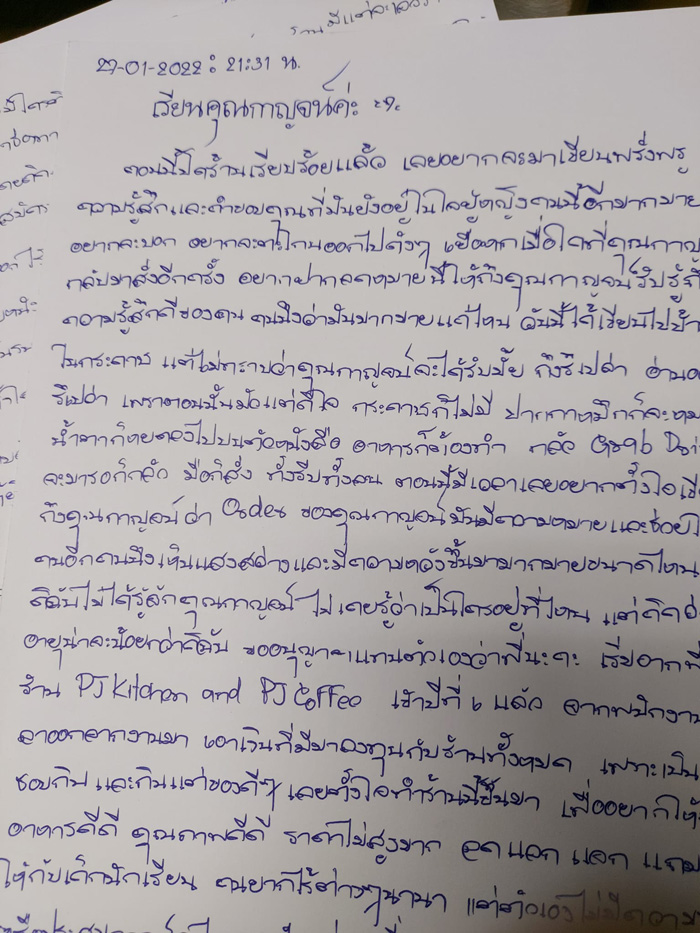 27-01-2022 : 21:31 น.
เรียนคุณกาญจน์ค่ะ
ตอนนี้ปิดร้านเรียบร้อยแล้ว เลยอยากจะมาเขียนพรั่งพรู
ความรู้สึกและคำขอบคุณที่มันยังอยู่ในใจผู้หญิงคนนี้อีกมากมาย
อยากจะบอก อยากจะตะโกนออกไปดังๆ เมื่อใดที่คุณกาญ
กลับมาสั่งอีกครั้ง อยากฝากจดหมายนี้ให้ถึงคุณกาญจน์รับรู้ถึ
ความรู้สึกดีของคน คนนึงว่ามันมากมายแค่ไหน วันนี้ได้เขียนไปบ้า
ในกระดาษ แต่ไม่ทราบว่าคุณกาญจน์จะได้รับมั้ย ถึงรึเปล่า อ่านอ
รึเปล่า เพราะตอนนั้นมัวแต่ดีใจ กระดาษก็ไม่มี ปากกาหมึกก็จะหม
น้ำตาก็หยดลงไปบนตัวหนังสือ อาหารก็ต้องทำ กลัว Grab Dri
จะมารอก็กลัว มือก็สั่น ทั้งรีบทั้งลน ตอนนี้มีเวลาเลยอยากตั้งใจเขี
ถึงคุณกาญจน์ว่า Order ของคุณกาญจน์มันมีความหมายและช่วยใ
คนอีกคนนึงเห็นแสงสว่างและมีความหวังขึ้นมามากมายขนาดไหน
ดิฉันไม่ได้รู้จักคุณกาญจน์ ไม่เคยรู้ว่าเป็นใครอยู่ที่ไหน แต่คิดว่
อายุน่าจะน้อยกว่าดิฉัน ขออนุญาตแทนตัวเองว่าพี่นะคะ เริ่มจากพี่
ร้าน PJ Kitchen and PJ Coffee เข้าปีที่ 6 แล้ว จากพนักงาน
ลาออกจากงานมา เอาเงินที่มีมาลงทุนกับร้านทั้งหมด เพราะเป็น
ชอบกิน และกินแต่ของดีๆ เลยตั้งใจทำร้านนี้ขึ้นมา เพื่ออยากให้
อาหารดีดี คุณภาพดีดี ราคาไม่สูงมาก ลด แลก แจก แถม
ให้กับเด็กนักเรียน คนยากไร้ต่างๆนานา แต่ตัวเองไม่มีความ